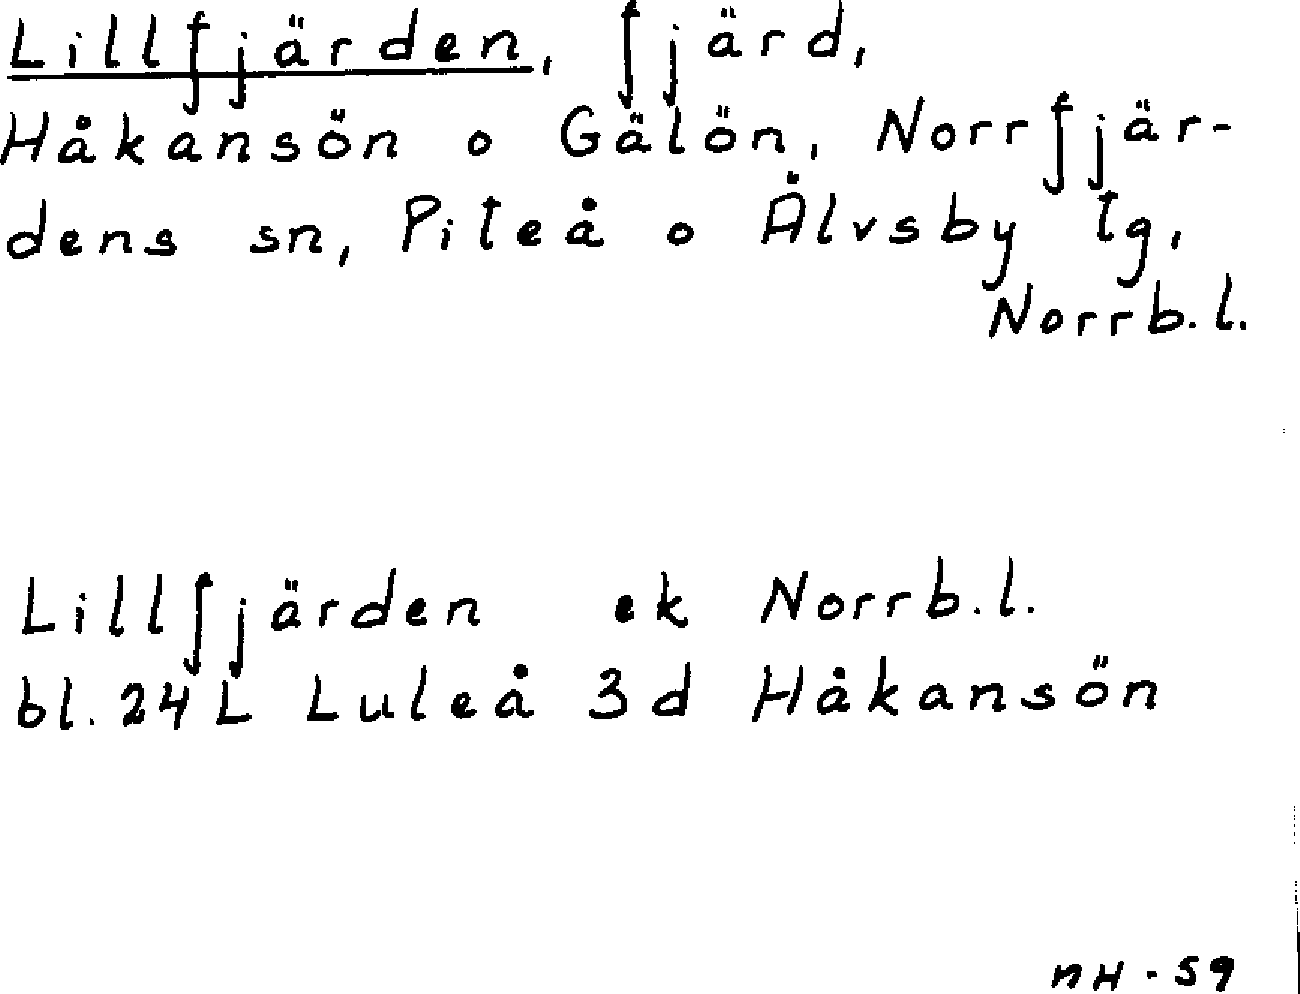 Lillfjärden, fjärd,
Håkansön o Gälön, Norrfjär-
dens sn, Piteå o Älvsby tg,
Norrb.l.
Lillfjärden ek Norrb.l.
bl. 24L Luleå 3d Håkansön
nH - 59